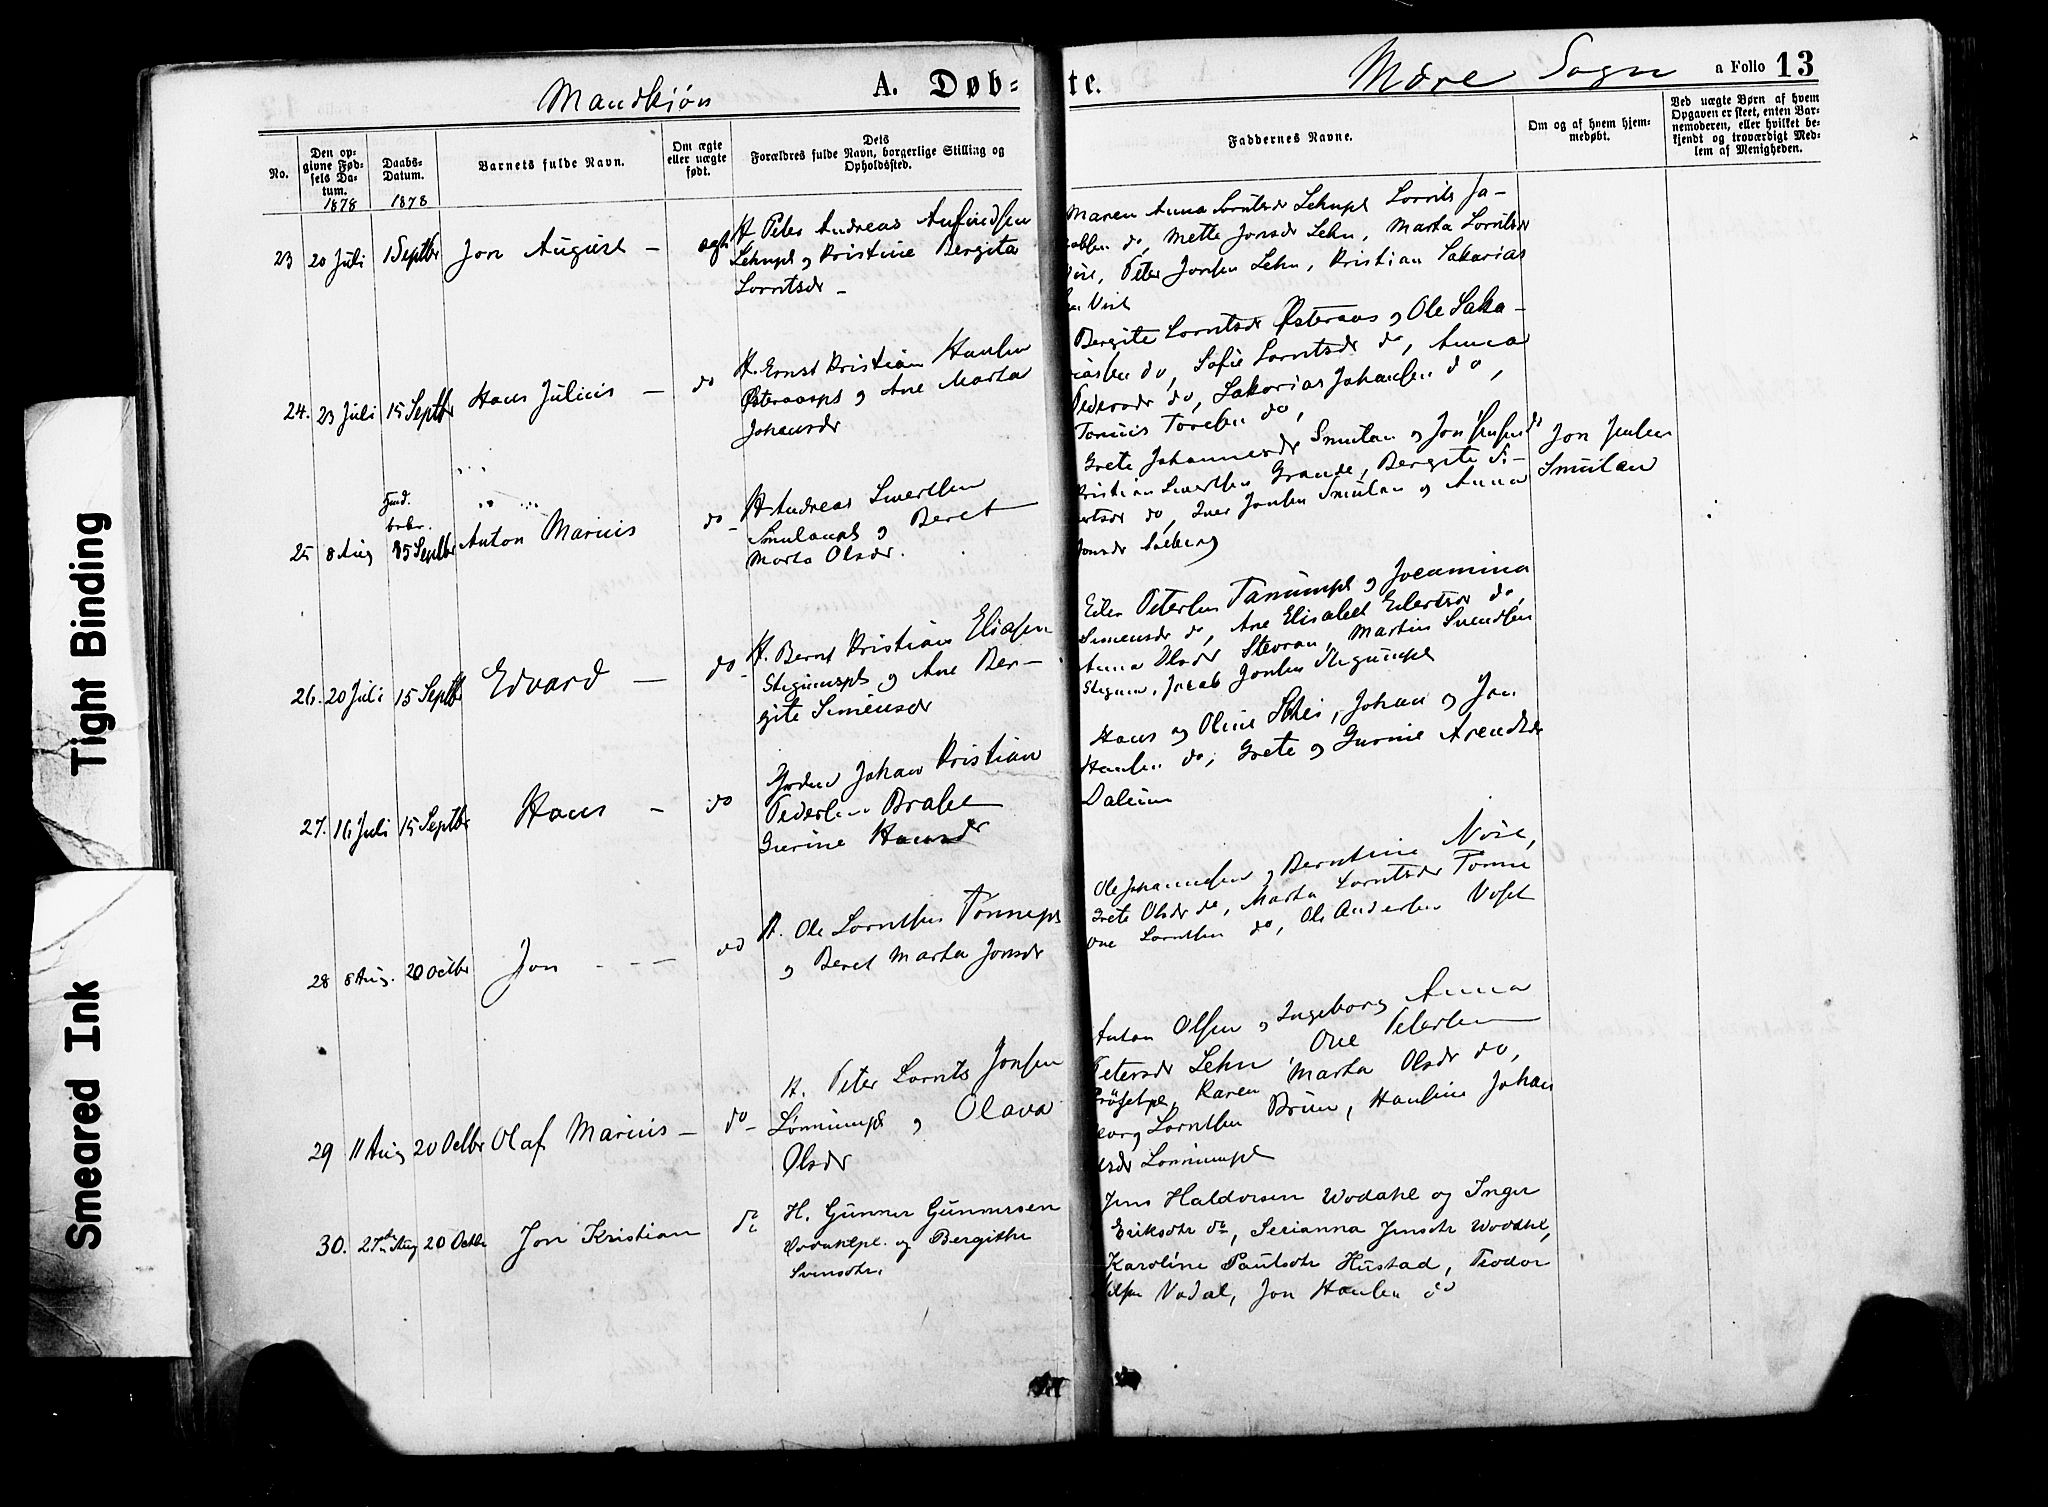 Mandkjøn
A. Døb-
te.
Mære Sogn
a Folio 13
No.
Den opgivne Fødsels Datum.
1878
Daabs-Datum.
1878
Barnets fulde Navn.
Om ægte eller uægte født.
Dets Forældres fulde Navn, borgerlige Stilling og Opholdssted.
Faddernes Navne.
Om og af hvem hjemmedøbt.
Ved uægte Børn af hvem Opgaven er skeet, enten Barnemoderen, eller hvilket bekjendt og troværdigt Medlem af Menigheden.
23 20 Juli 1 Septbr Jon August — ægte
H Peter Andreas Anfindsen
Lehnpl og Kristine Bergita
Lorntsdr —
Maren Anna Lorntsdr Lehnpl Lornts Ja-
cobsen do, Mette Jonsdr Lehn, Marta Lorntsdr
Peter Jonsen Lehn, Kristian Sakarias
Vist
24. 23 Juli 15 Septbr Hans Julius — do
H. Ernst Kristian Hansen
Østeraaspl og Ane Marta
Johansdr
Bergite Lorntsdr Østeraas og Ole Saka-
riassen do, Sofie Lorntsdr do, Anna
Pedersdr do, Sakarias Johansen do,
Tonius Toresen do,
25 8 Aug
15 Septbr Anton Marius do —
H Andreas Sivertsen
Smulanpl og Beret
Marta Olsdr.
Grete Johannesdr Smulan og Jon Jensen do
Kristian Sivertsen Grande, Bergite Si-
vertsdr do, Iver Jonsen Smulan og Anna
Jonsdr Solberg
Jon Jensen
Smulan
26. 20 Juli 15 Septbr Edvard — do —
H. Bernt Kristian Eliasen
Stegumspl og Ane Ber-
gite Simensdr
Eiler Petersen Tanumpl og Jocumina
Simensdr do, Ane Elisabet Eilertsdr do,
Anna Olsdr Stevran, Martin Svendsen
Stegum, Jacob Jonsen Stegumpl
27. 16 Juli 15 Septbr Hans — do
Grdm Johan Kristian
Pedersen Braset
Gurine Hansdr
Hans og Oline Schei, Johan og Jon
Hansen do, Grete og Gurine Arendtsdr
Dalum
28 8 Aug. 20 Octbr Jon - - - do
H. Ole Lorntsen Tonnepl
og Beret Marta Jonsdr
Ole Johannesen og Berntine Vist,
Grete Olsdr do, Marta Lorntsdr Tonne
Ove Lorntsen do, Ole Andersen Voset
29 11 Aug 20 Octbr Olaf Marius — do —
H. Peter Lornts Jonsen
Lønnumpl og Olava
Olsdr
Anton Olsen og Ingeborg Anna
Petersdr Lehn, Ove Petersen
Prøsetpl, Karen Marta Olsdr do,
Georg Lorntsen Bruun, Hansine Johan
esdr Lønnumpl
30. 27de Aug 20 Octbr Jon Kristian do
H. Gunner Gunnersen
Vodahlpl. og Bergithe
Svensdtr.
Jens Haldorsen Wodahl og Inger
Eriksdtr do, Serianna Jensdtr Wodahl,
Karoline Paulsdtr Hustad, Teodor
Vodal, Jon Hansen do
Tight Binding
Smeared Ink